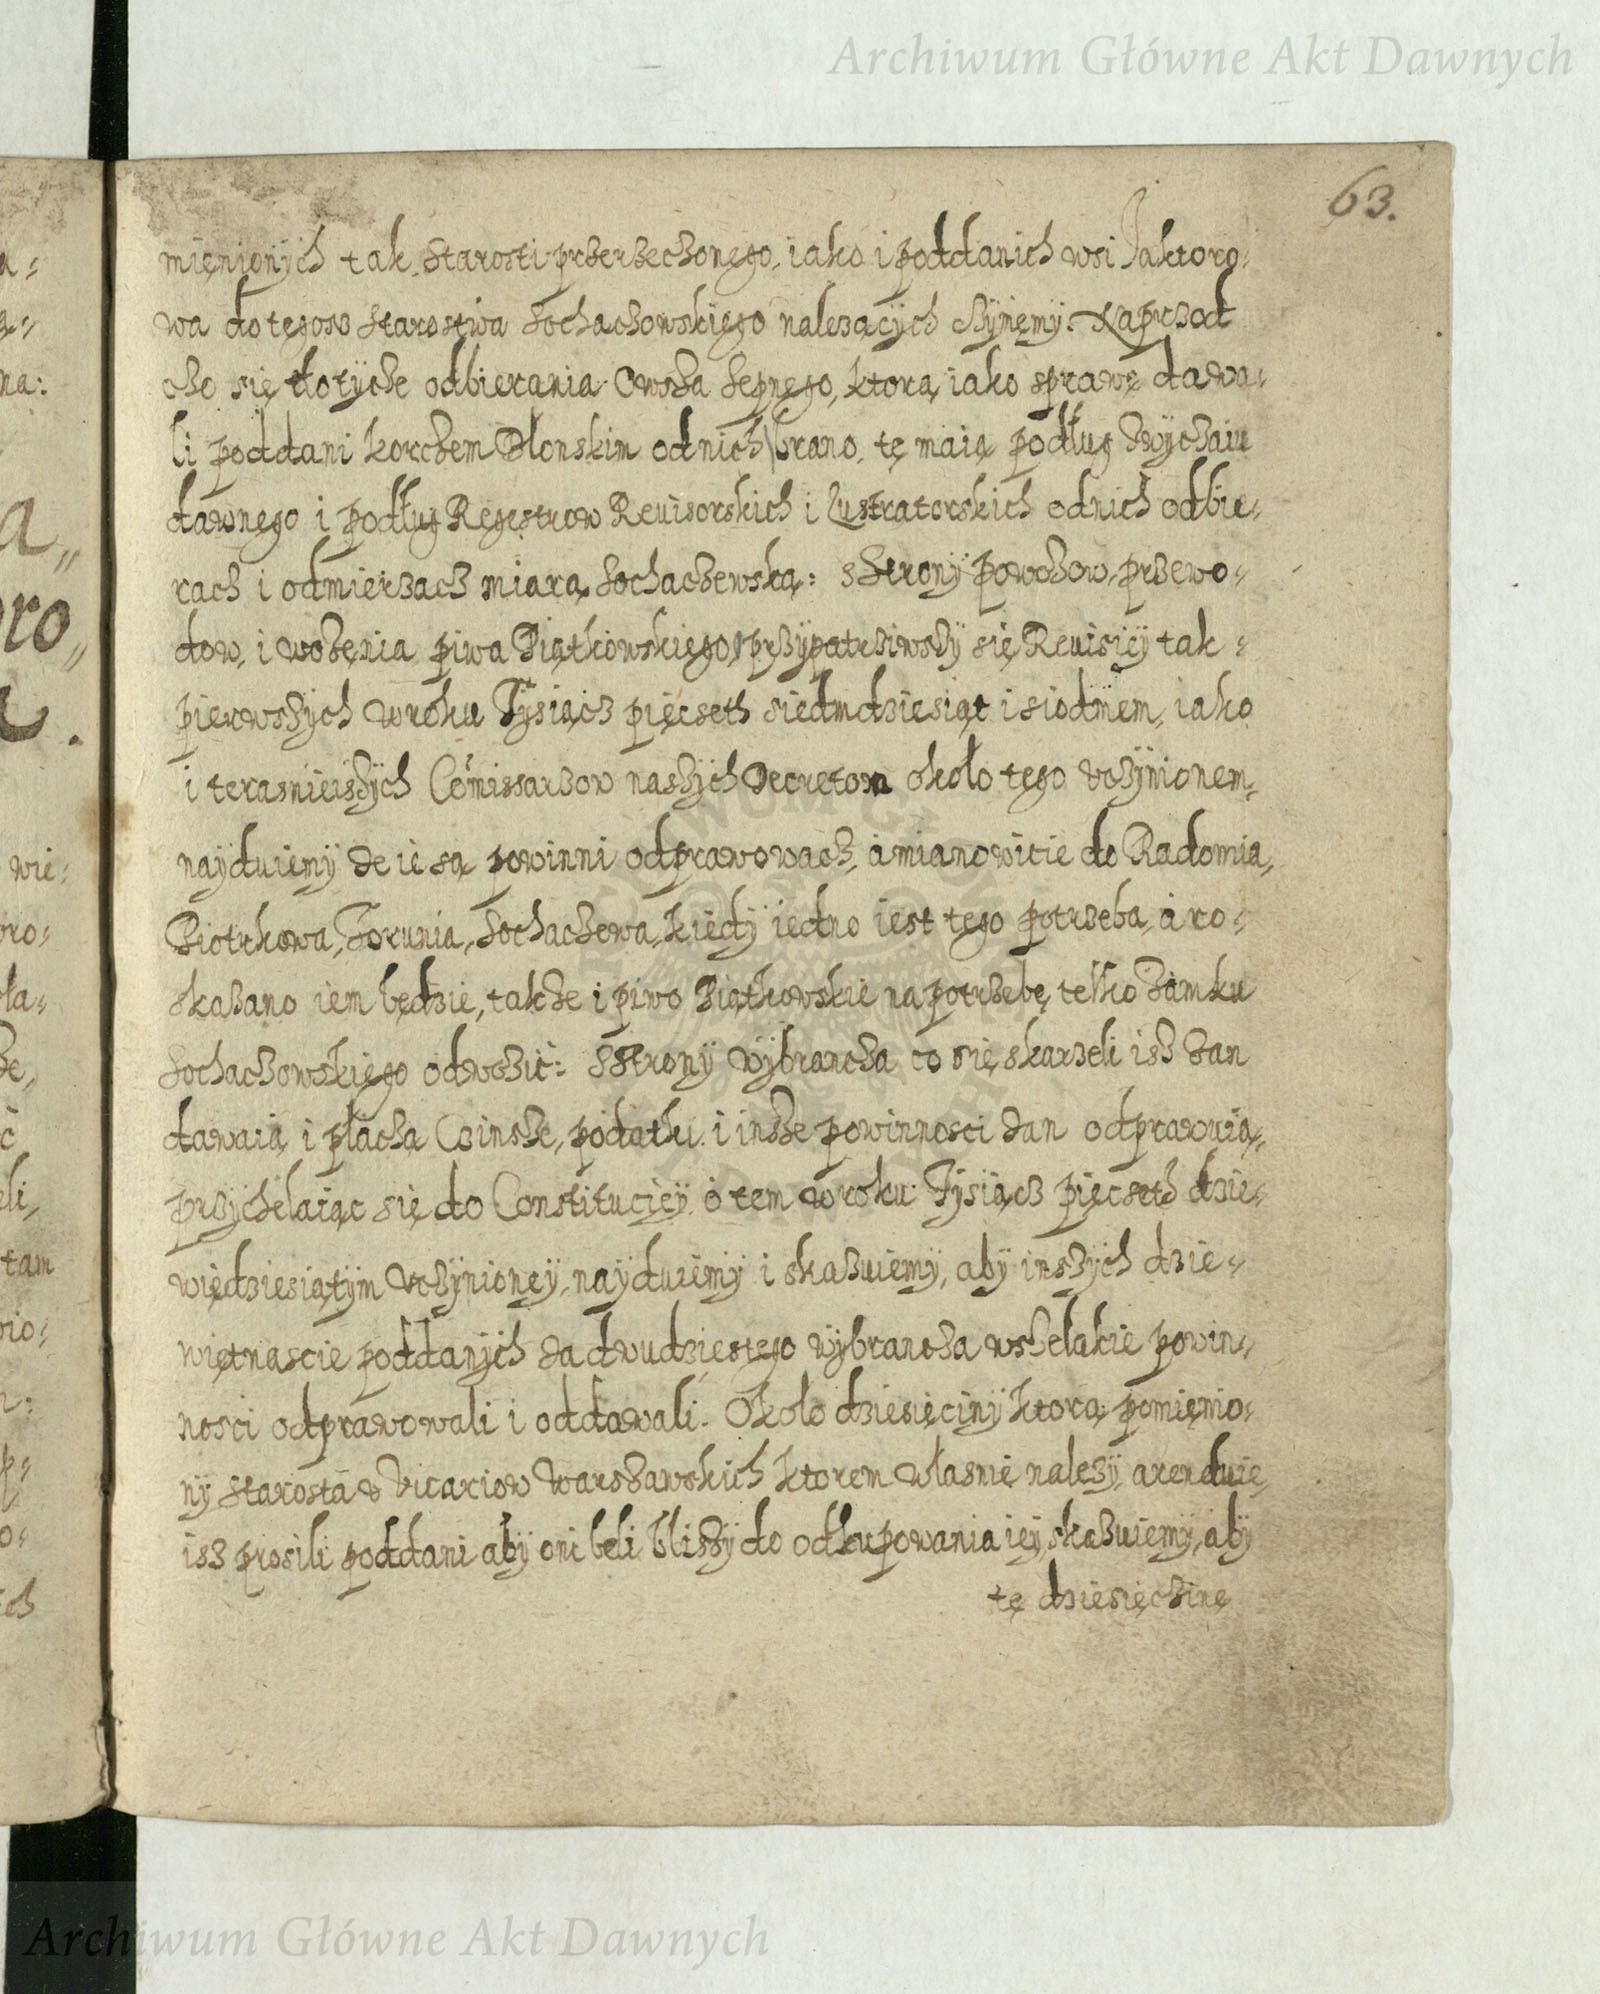 Archiwum Główne Akt Dawnych
63.
mięnionÿch tak starosti przerzeczonego, iako i poddanich wsi Jaktoro-
wa do tegosz starostwa sochaczowskięgo nalezącÿch czÿnęmÿ. Naprzod
czo się dotÿcże odbierania Owsża sepnego, ktorą iako sprawę dawa-
li poddani korczem Błonskim od nich brano, tę maią podług zwÿczaiu
dawnego i podług Regestrow Reuisorskich i Lustratorskich od nich odbie-
racz i odmierzacz miarą sochaczewską: s strony powozow, przewo-
dow, i wożęnia piwa Piątkowskięgo, przÿpatrziwszÿ się Reuisiÿ tak
pierwszÿch w roku Tÿsiącz pięcseth siedmdziesiąt i siodmem, iako
i terasnieiszÿch Comissarzow naszÿch Decretom około tego vczÿnionem,
naÿduiemÿ że ie są powinni odprawowacz, a mianowicie do Radomia,
Piotrkowa, Torunia, Sochaczewa, kiedÿ iedno iest tego potrzeba, a ro-
skazano iem będzie, takze i piwo Piątkowskie na potrzebę telko zamku
Sochaczowskięgo odwozić: s strony wÿbrancza co się skarzeli isz zan
dawaią i płaczą Czinsze, podatki i insze powinnosci zan odprawuią,
przÿchelaiąc się do Constituciÿ o tem w roku Tÿsiącz pięcseth dzie-
więdziesiątÿm vczÿnionęÿ, naÿduiemÿ i skazuiemÿ, abÿ inszÿch dzie-
więtnascie poddanÿch za dwudziestego wÿbrancza wszelakie powin-
nosci odprawowali i oddawali. Około dziesięcinÿ ktorą pomięnio-
nÿ starosta v Vicariow Warszawskich ktorem własnie nalezÿ, arenduie,
isz prosili poddani abÿ oni beli bliszÿ do odkupowania ieÿ, skazuiemÿ, abÿ
tę dziesięczinę
Archiwum Główne Akt Dawnych